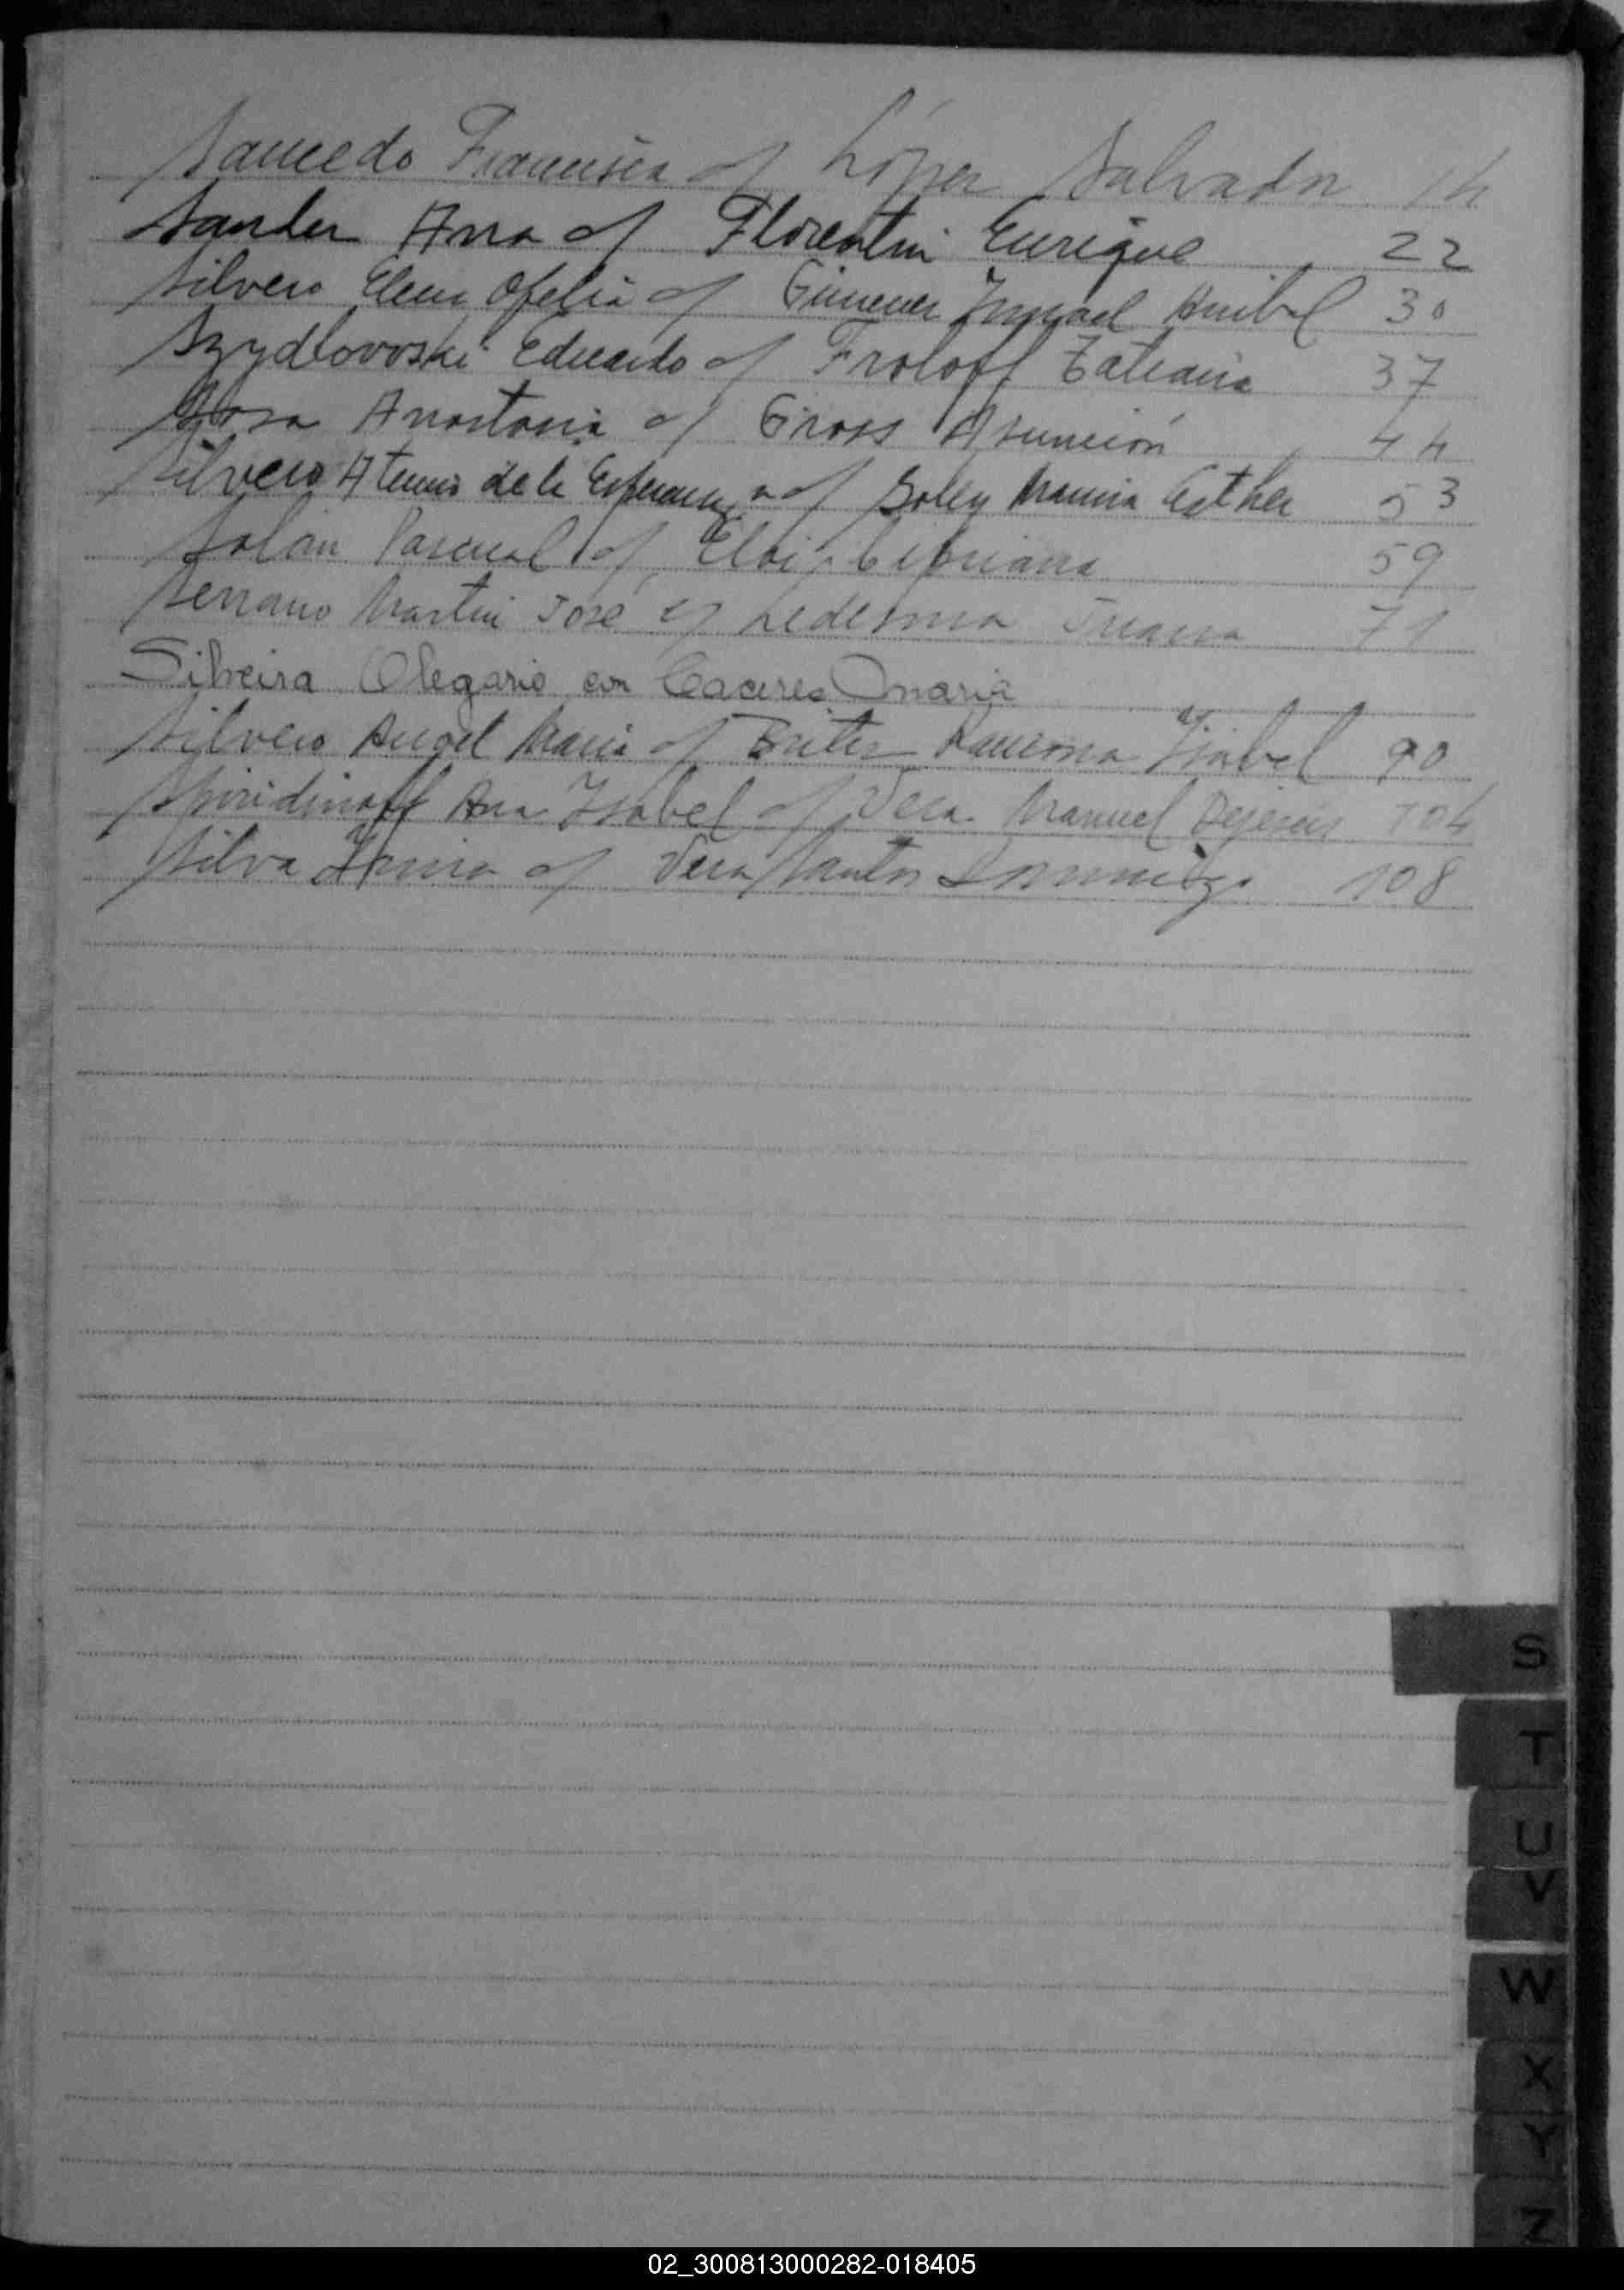 Saucedo Francisca c/ López Salvador 14
Sander Ana c/ Florentin Enrique 22
Silvero Elena Ofelia c/ Gimenez Ismael Anibal 30
Szydlovoski Eduardo c/ Froloff Tatiana 37
Sosa Anastasia c/ Gross Asunción 44
Silvero Atenas de la Esperanza c/ Soley Maria Esther 53
Solan Pascual c/ Cipriana 59
Serrano Martin José c/ Ledesma Juana 71
Silveira Olegario con Caceres Maria
Silvero Angel Maria c/ Britez Ramona Isabel 90
Spiridinoff Ana Isabel c/ Vera Manuel Dejesus 104
Silva c/ Vera Santos 108
S
T
U
V
W
X
Y
Z
02_300813000282-018405